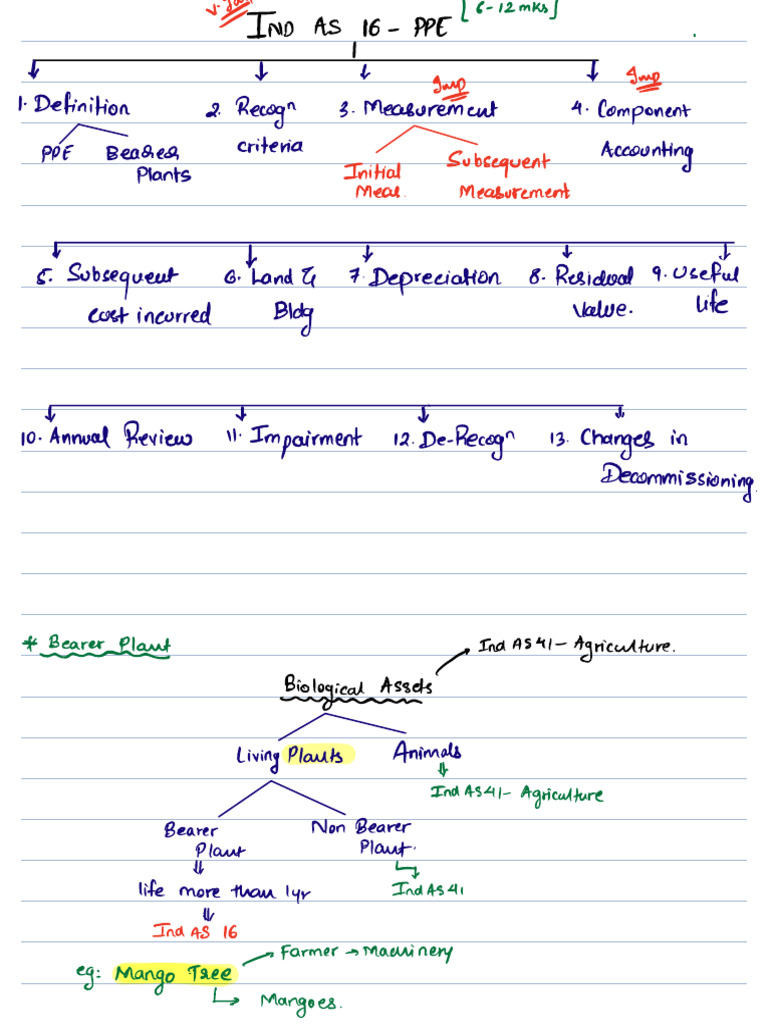 V. Imp
IND AS 16 - PPE [6-12 mks]
Imp Imp
1. Definition 2. Recogn criteria 3. Measurement 4. Component Accounting
PPE Bearer Plants
Initial Meas. Subsequent Measurement
5. Subsequent cost incurred 6. Land & Bldg 7. Depreciation 8. Residual Value. 9. Useful life
10. Annual Review 11. Impairment 12. De-Recogn 13. Changes in Decommissioning.
* Bearer Plant
Ind AS 41 - Agriculture.
Biological Assets
Living Plants Animals
Ind AS 41 - Agriculture
Bearer Plant Non Bearer Plant.
life more than 1yr Ind AS 41
Ind AS 16
Farmer → Machinery
eg: Mango Tree
Mangoes.